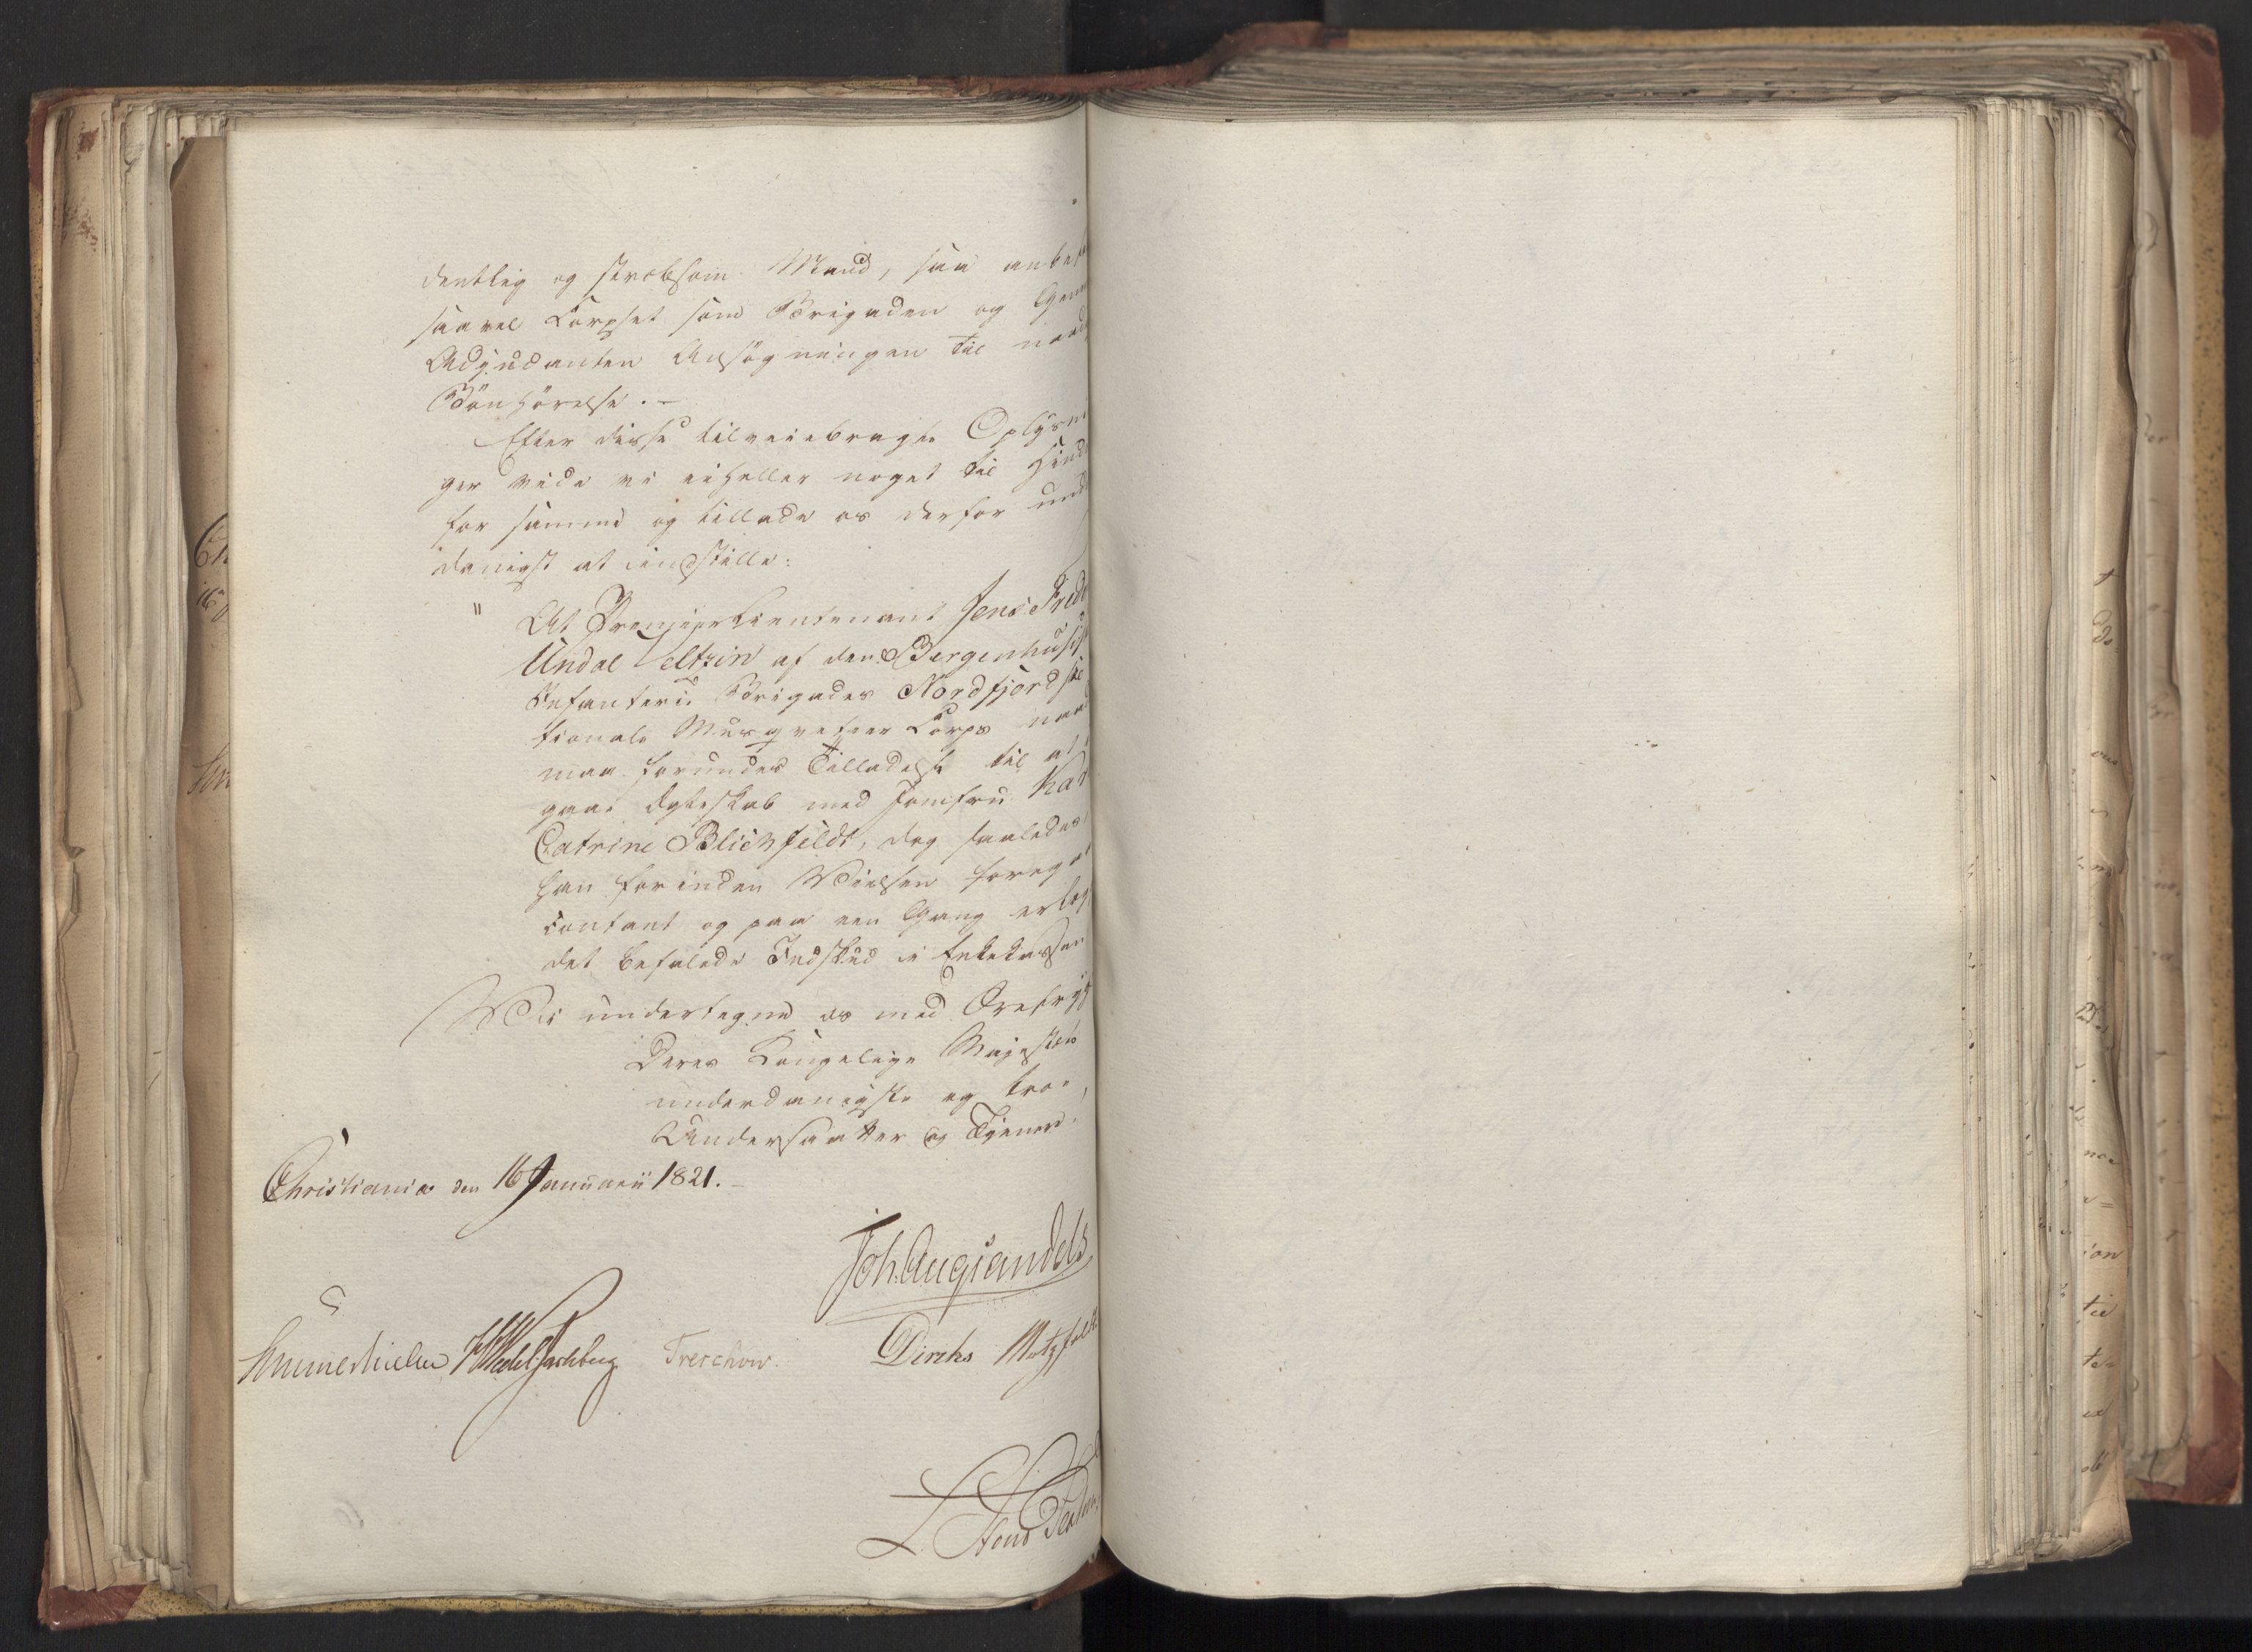 dentlig og stræbsom Mand, saa anbef
saavel Corpset som Brigaden og Gene
Adjudanten Ansøgningen til naad
Bønhørelse. -
Efter disse tilveiebragte Oplysni
ger vide vi ei heller noget til Hind
for samme og tillade os derfor und
danigst at indstille:
" At Premierlieutenant Jens Fride
Undal Veltzin af den Bergenhusis
Infanterie Brigades Nordfjordske
tionale Musqveteer Corps naa
maa forundes Tilladelse til at
gaae Ægteskab med Jomfru Kar
Catrine Blichfeldt, dog saaledes
han forinden Vielsen foreg
contant og paa een Gang erlæg
det befalede Indskud i Enkekassen
Vi undertegne os med Ærefrygt
Deres Kongelige Majestets
underdanigste og troe
Undersaatter og Tjenere.
Christiania den 16 Januarii 1821. -
Joh. Aug. Sandels
Sommerhielm HWedel Jarlsberg Treschow. Diriks Motzfeldt
L. Stoud Platou